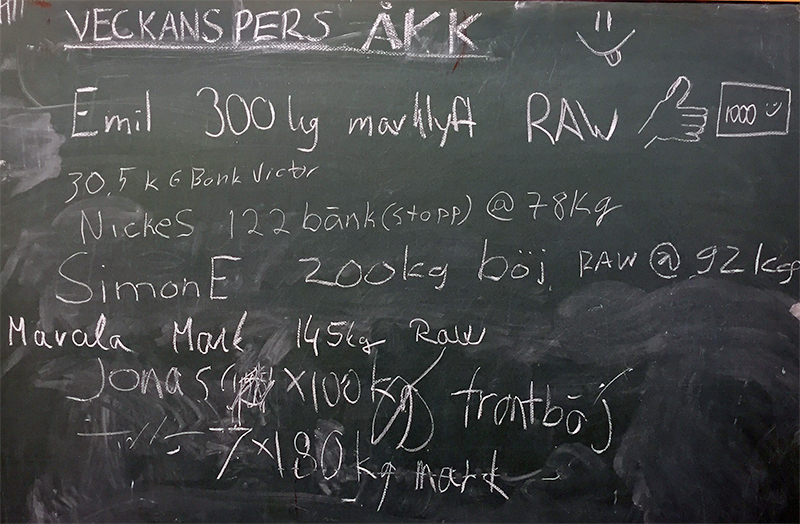 VECKANS PERS ÅKK
Emil 300kg marklyft RAW 1000
30,5 kG Bänk Victor
NickeS 122 bänk (stopp) @ 78Kg
SimonE 200kg böj RAW @ 92 kg
Mavala Mark 145kg Raw
Jonas x100kg frontböj
7x180kg mark